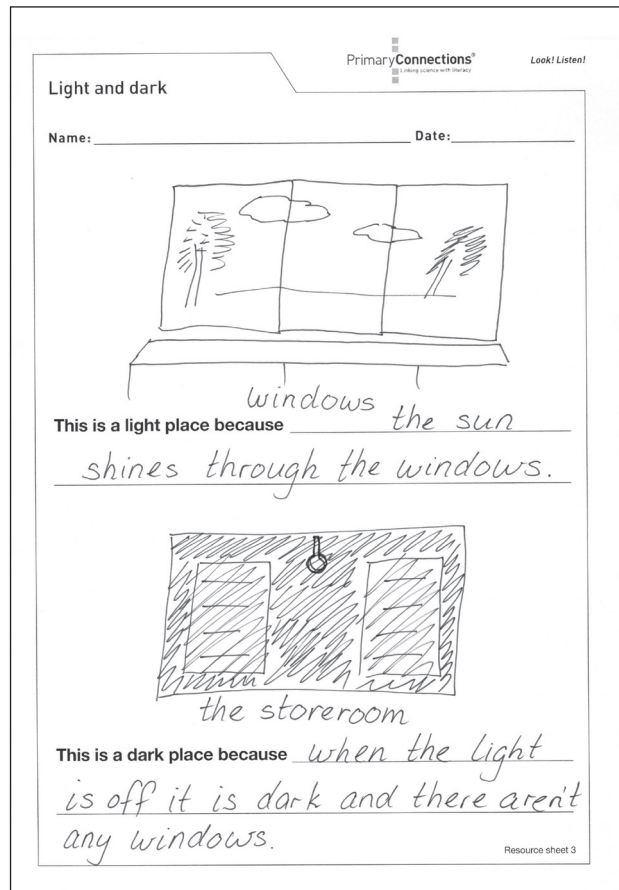 PrimaryConnections®
Linking science with literacy
Look! Listen!
Light and dark
Name:
Date:
windows
This is a light place because the sun
shines through the windows.
the storeroom
This is a dark place because when the light
is off it is dark and there aren't
any windows.
Resource sheet 3